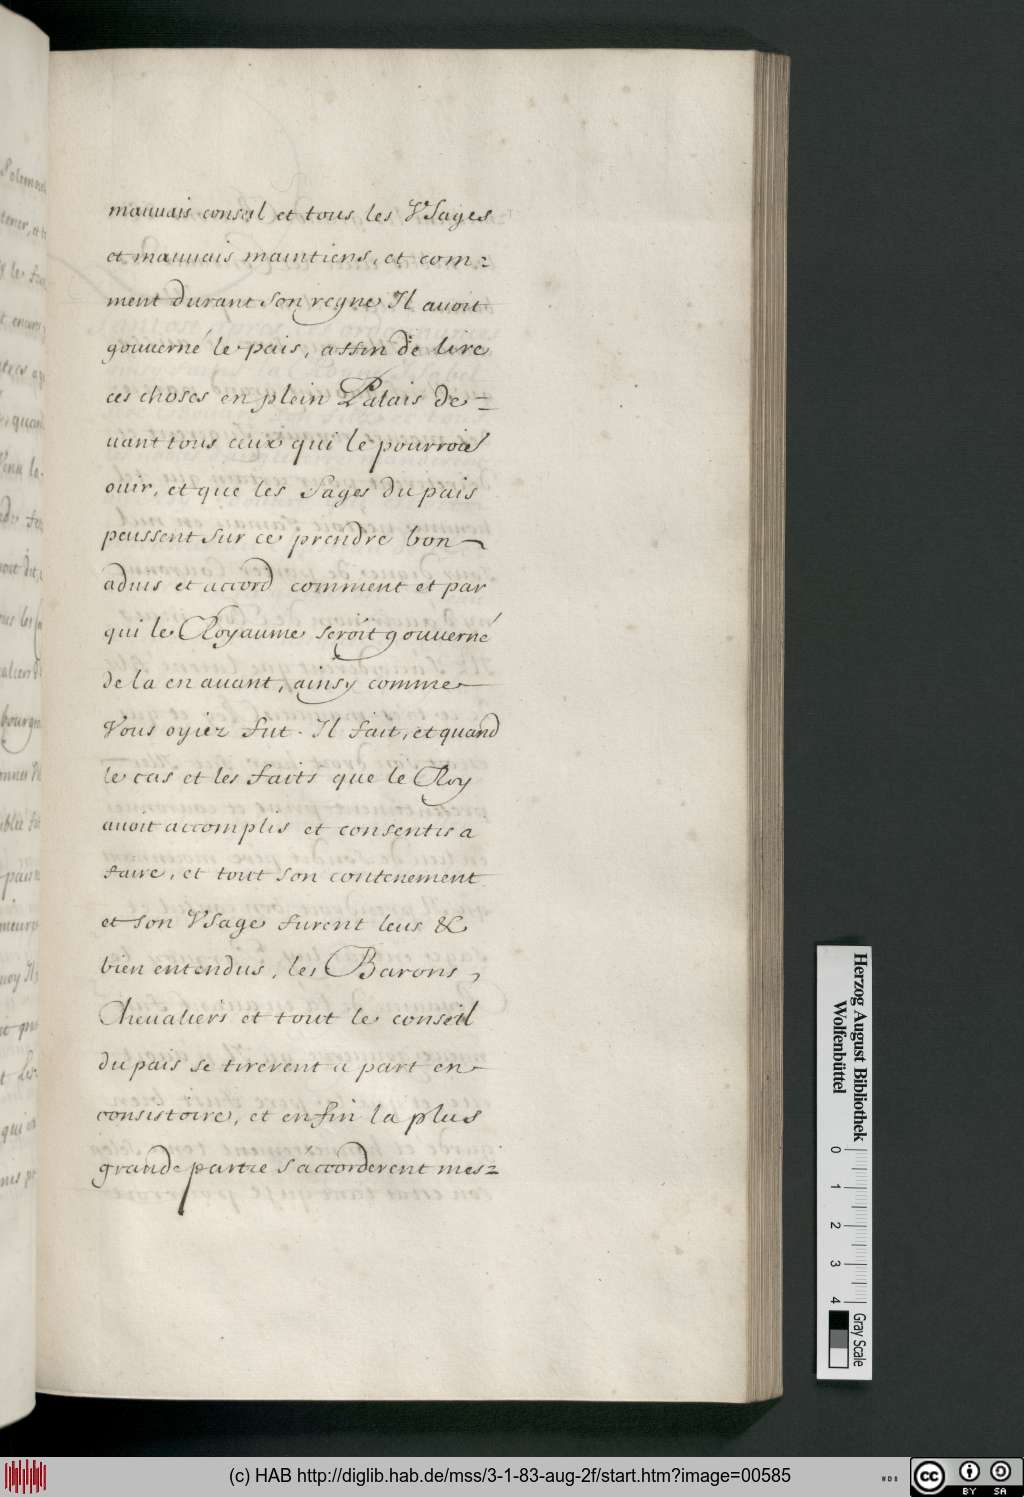 mauuais conseil et tous les Vsages
et mauuais maintiens, et com-
ment durant son regne Il auoit
gouuerné le pais, affin de lire
ces choses en plein Palais de-
uant tous ceux qui le pourroiẽ
ouir, et que les Sages du pais
peussent sur ce prendre bon
aduis et accord comment et par
qui le Royaume seroit gouuerné
de la en auant, ainsy comme
Vous oyiez fut. Il fait, et quand
le cas et les faits que le Roy
auoit accomplis et consentis a
faire, et tout son contenement
et son Vsage furent leus &
bien entendus, les Barons,
Cheualiers et tout le conseil
du pais se tirerent a part en
consistoire, et enfin la plus
grande partie s'accorderent mes-
Herzog August Bibliothek
Wolfenbüttel
0 1 2 3 4
Gray Scale
(c) HAB http://diglib.hab.de/mss/3-1-83-aug-2f/start.htm?image=00585
WDB
cc
BY SA